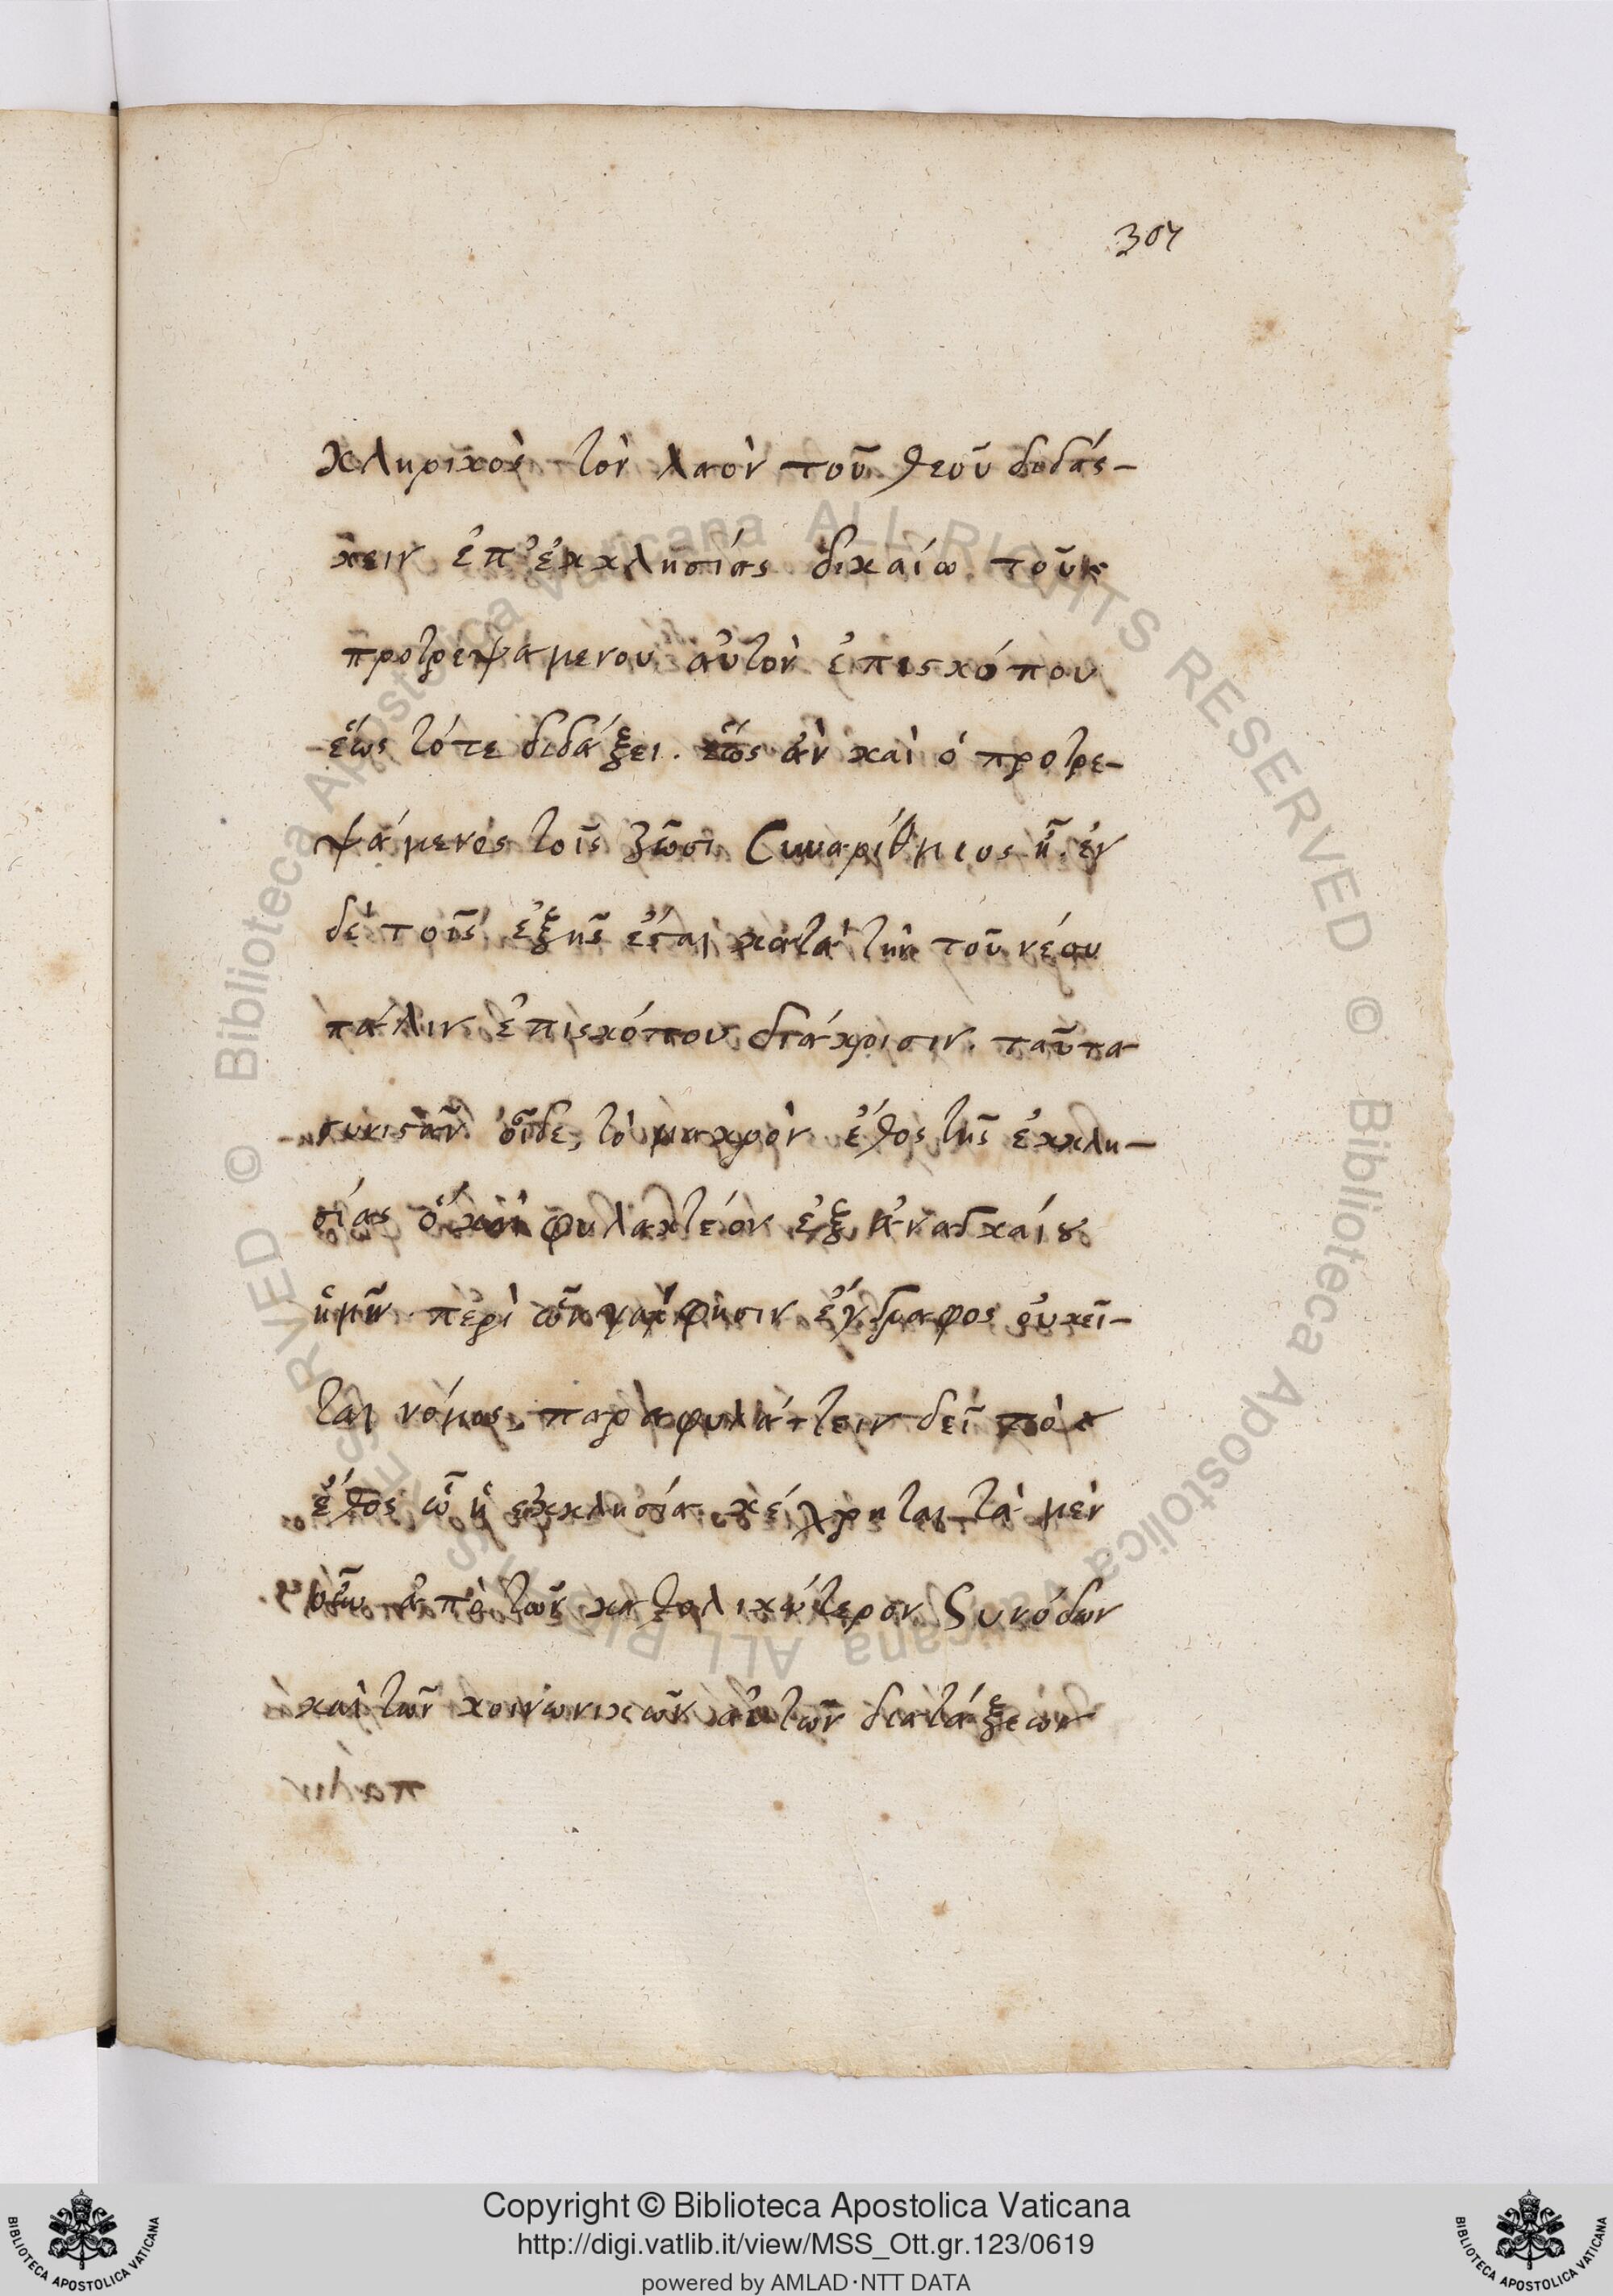 307
κληρικὸς τὸν λαὸν τοῦ θεοῦ διδάσ-
κειν ἐπ' ἐκκλησίας δικαίω τοῦ
προτρεψαμενου αὐτὸν ἐπισκόπου
ἕως τότε διδάξει. ἕως ἂν καὶ ὁ προτρε-
ψάμενος τοῖς ζῶσι συναρίθμιος ἦ. ἐν
δὲ τοῖς ἑξῆς ἔσται κατὰ τὴν τοῦ νέου
πάλιν ἐπισκόπου διάκρισιν. ταῦτα
συνιστᾶν οἶδε, τὸ μακρὸν ἔθος τῆς ἐκκλη-
σίας ὃ καὶ φυλακτέον ἐξ ἀναγκαίου
ἡμῖν περὶ ὧν φησιν ἔγγραφος οὐ κεῖ-
ται νόμος, παραφυλάττειν δεῖ τὸ
ἔθος ὧ ἡ ἐκκλησία κέχρηται τὰ μὲν
οὖν ἀπὸ τῶν καθολικώτερον συνόδων
καὶ τῶν κοινωνικῶν αὐτῶν διατάξεων
Copyright © Biblioteca Apostolica Vaticana
http://digi.vatlib.it/view/MSS_Ott.gr.123/0619
powered by AMLAD·NTT DATA
BIBLIOTECA APOSTOLICA VATICANA
BIBLIOTECA APOSTOLICA VATICANA
© Biblioteca Apostolica Vaticana ALL RIGHTS RESERVED © Biblioteca Apostolica Vaticana ALL RIGHTS RESERVED